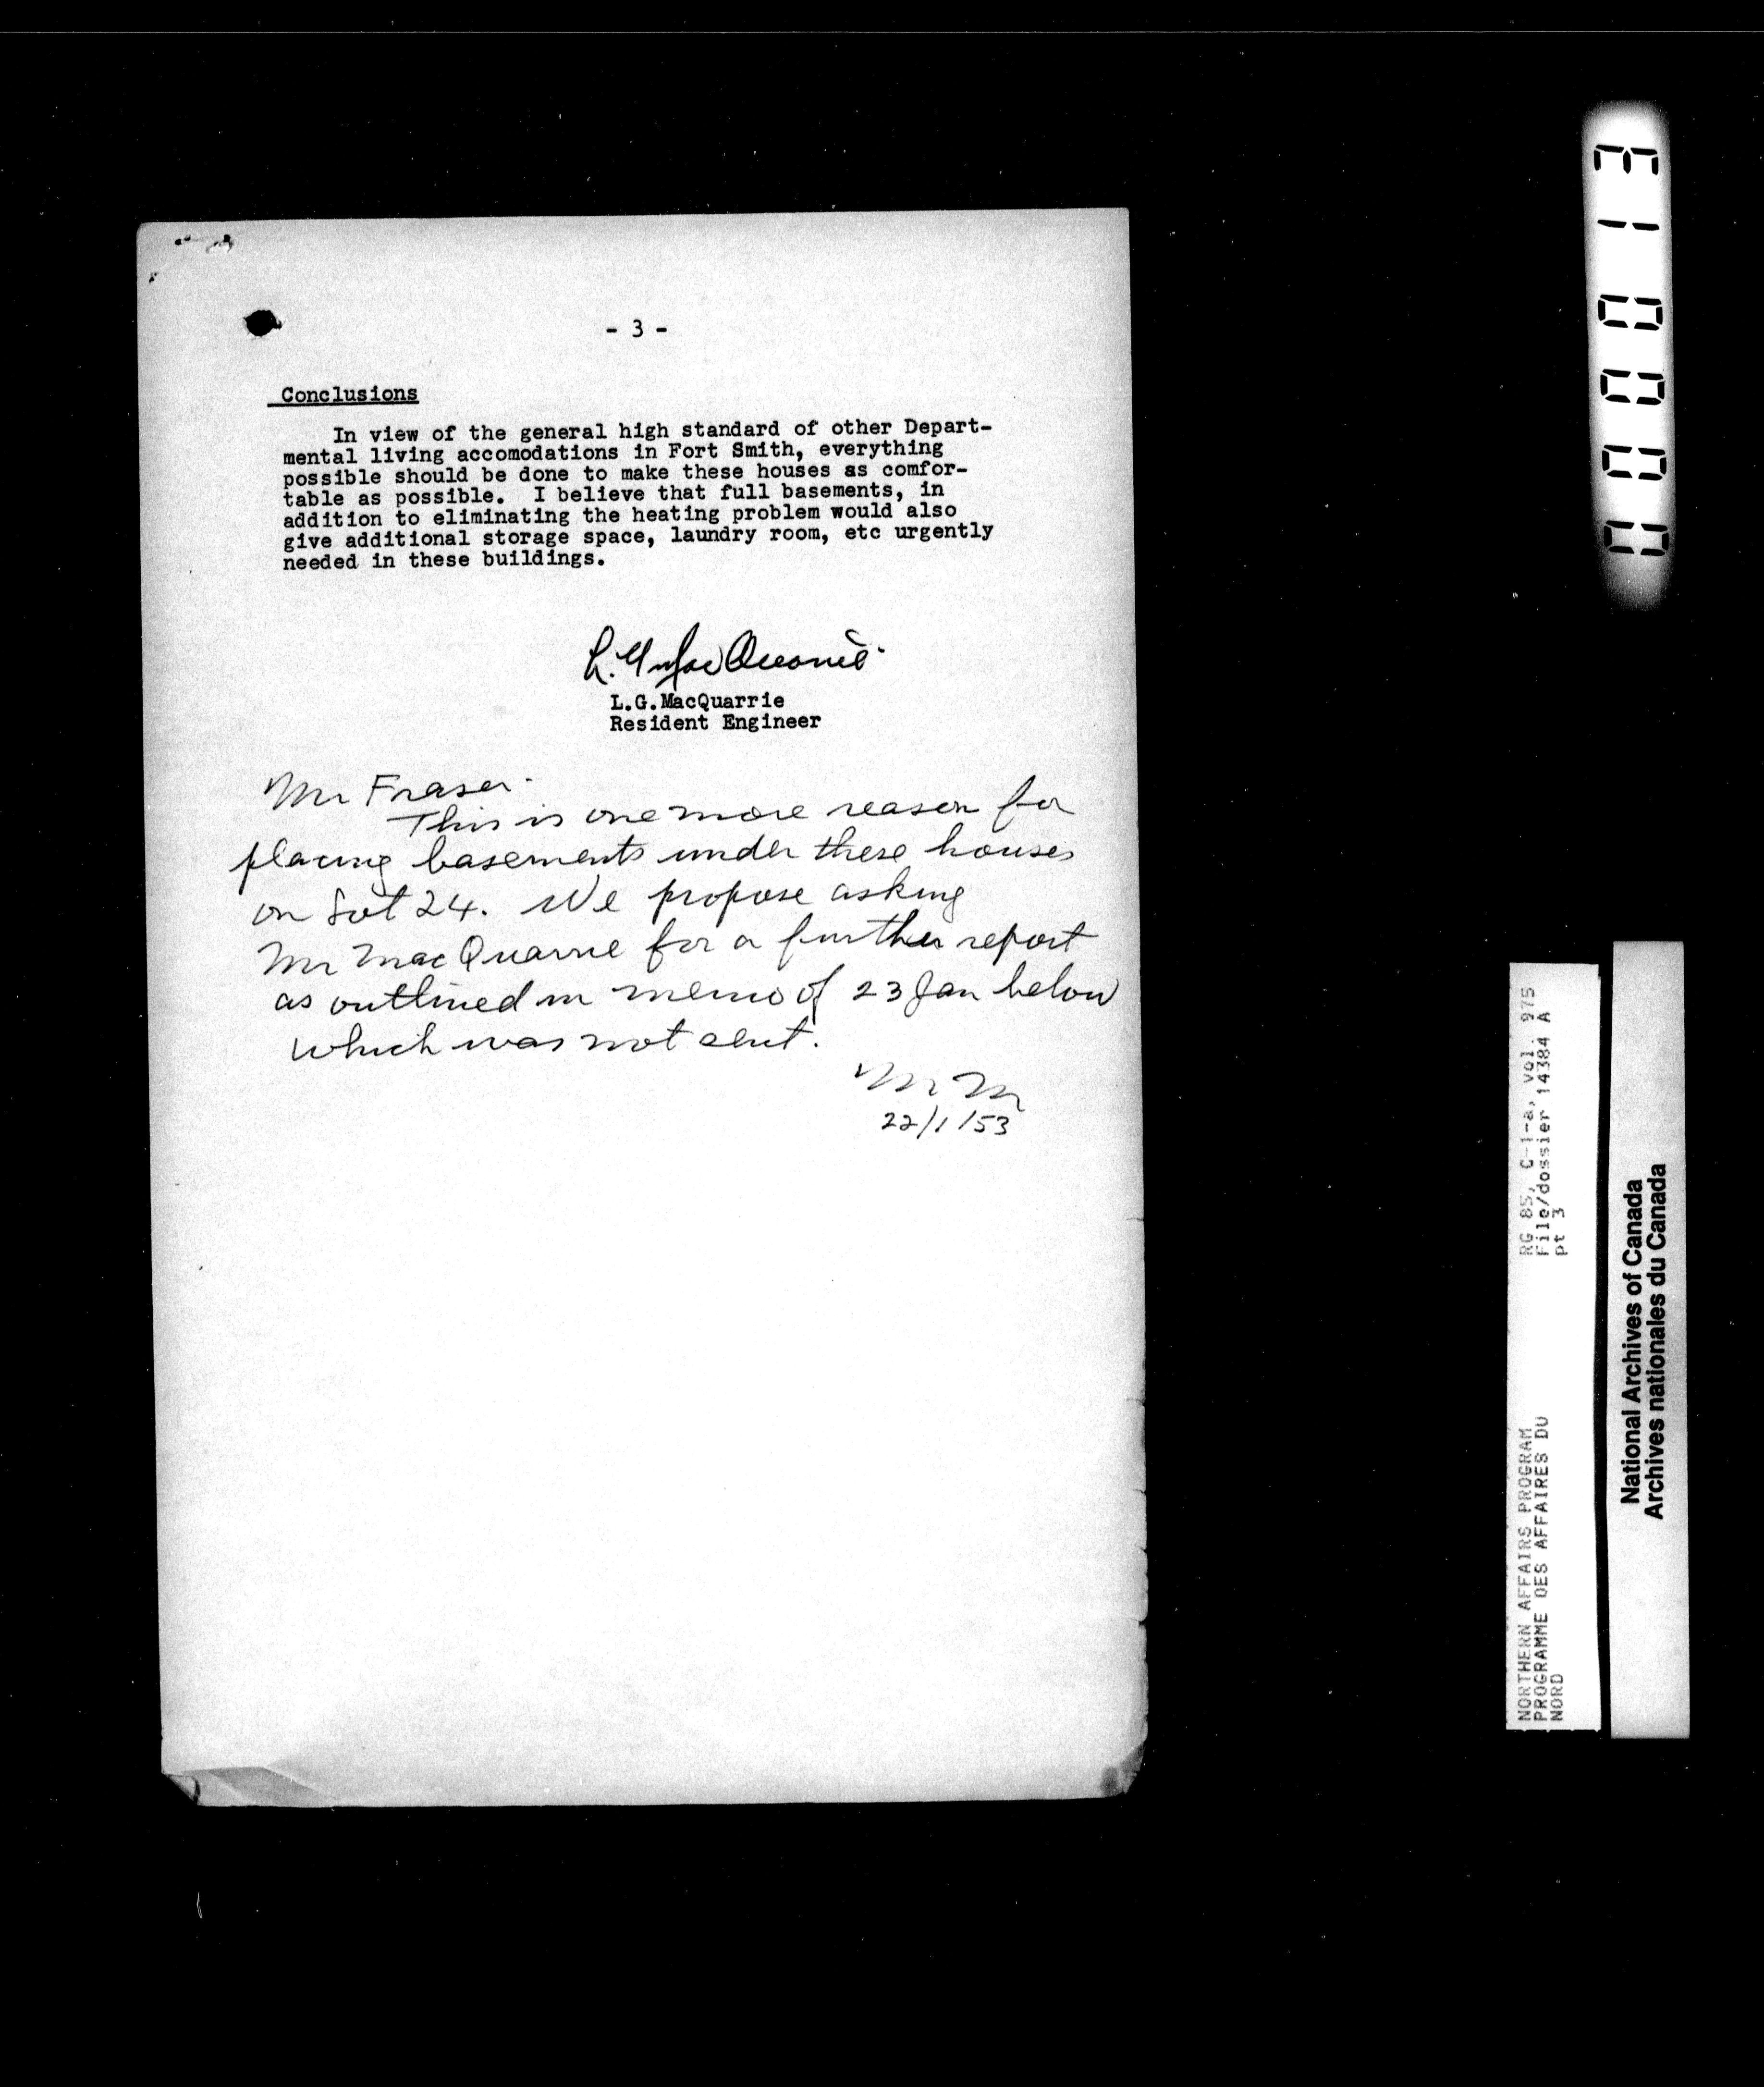 - 3 -
Conclusions
In view of the general high standard of other Depart-
mental living accomodations in Fort Smith, everything
possible should be done to make these houses as comfor-
table as possible. I believe that full basements, in
addition to eliminating the heating problem would also
give additional storage space, laundry room, etc urgently
needed in these buildings.
L.G. MacQuarrie
L.G.MacQuarrie
Resident Engineer
Mr Fraser.
This is one more reason for
placing basements under these houses
on Lot 24. We propose asking
Mr MacQuarrie for a further report
as outlined in memo of 23 Jan below
which was not sent.
22/1/53
310000
RG 85, C-1-a, vol. 975
File/dossier 14384 A
pt 3
NORTHERN AFFAIRS PROGRAM
PROGRAMME DES AFFAIRES DU
NORD
National Archives of Canada
Archives nationales du Canada